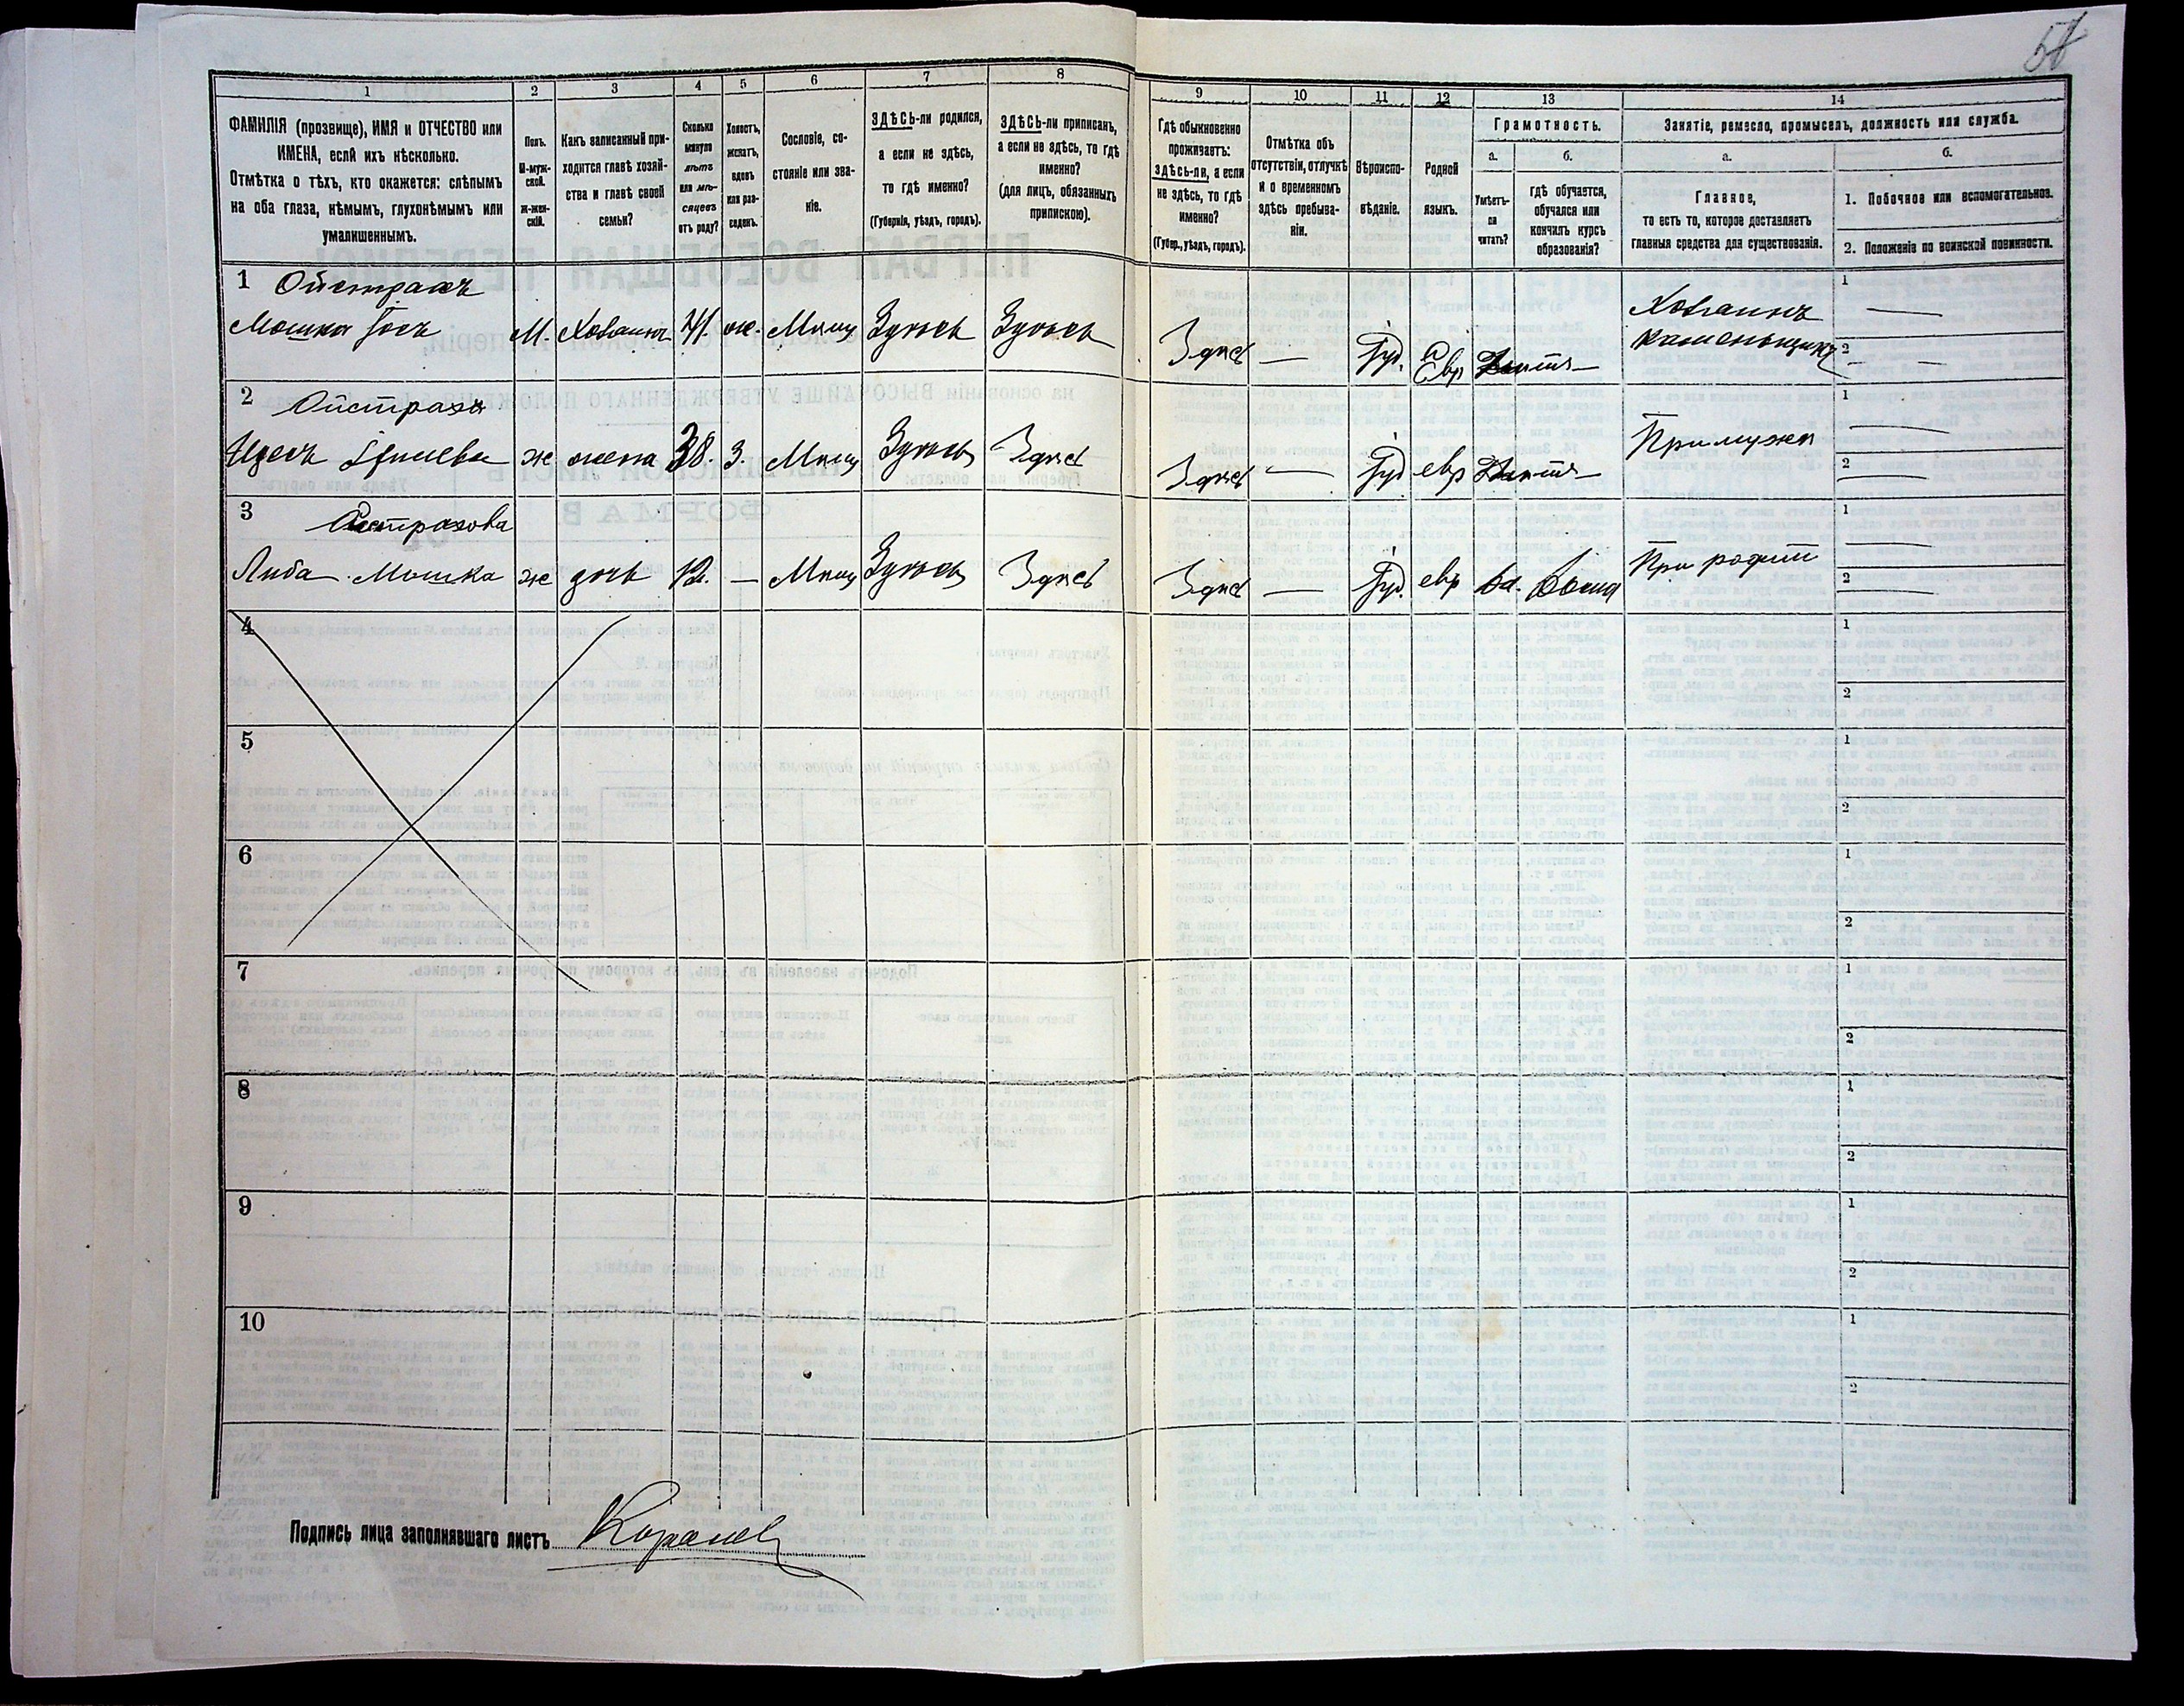 58
1 2 3 4 5 6 7 8
9 10 11 12 13 14
ФАМИЛІЯ (прозвище), ИМЯ и ОТЧЕСТВО или
ИМЕНА, если ихъ нѣсколько.
Отмѣтка о тѣхъ, кто окажется: слѣпымъ
на оба глаза, нѣмымъ, глухонѣмымъ или
умалишеннымъ.
Полъ.
М-муж-
ской.
ж-жен-
скій.
Какъ записанный при-
ходится главѣ хозяй-
ства и главѣ своей
семьи?
Сколько
минуло
лѣтъ
или мѣ-
сяцевъ
отъ роду?
Холостъ,
женатъ,
вдовъ
или раз-
веденъ.
Сословіе, со-
стояніе или зва-
ніе.
ЗДѢСЬ-ли родился,
а если не здѣсь,
то гдѣ именно?
(Губернія, уѣздъ, городъ).
ЗДѢСЬ-ли приписанъ,
а если не здѣсь, то гдѣ
именно?
(для лицъ, обязанныхъ
припискою).
Гдѣ обыкновенно
проживаетъ:
здѣсь-ли, а если
не здѣсь, то гдѣ
именно?
(Губер., уѣздъ, городъ).
Отмѣтка объ
отсутствіи, отлучкѣ
и о временномъ
здѣсь пребыва-
ніи.
Вѣроиспо-
вѣданіе.
Родной
языкъ.
Грамотность.
а.
Умѣетъ-
ли
читать?
б.
гдѣ обучается,
обучался или
кончилъ курсъ
образованія?
Занятіе, ремесло, промыселъ, должность или служба.
а.
Главное,
то есть то, которое доставляетъ
главныя средства для существованія.
б.
1. Побочное или вспомогательное.
2. Положеніе по воинской повинности.
1 Ойстрахъ
Мошка М. Хозяинъ 41. ж. Мѣщ Здѣсь Здѣсь Здѣсь — Іуд. Евр — Хозяинъ 1 —
каменьщикъ 2 —
2 Ойстрахъ
ж жена 38. З. Мѣщ Здѣсь Здѣсь Здѣсь — Іуд евр — При мужѣ 1 —
2 —
3 Ойстрахова
Либа Мошка ж дочь 12. — Мѣщ Здѣсь Здѣсь Здѣсь — Іуд. евр При родит 1 —
2 —
4 1
2
5 1
2
6 1
2
7 1
2
8 1
2
9 1
2
10 1
2
Подпись лица заполнявшаго листъ